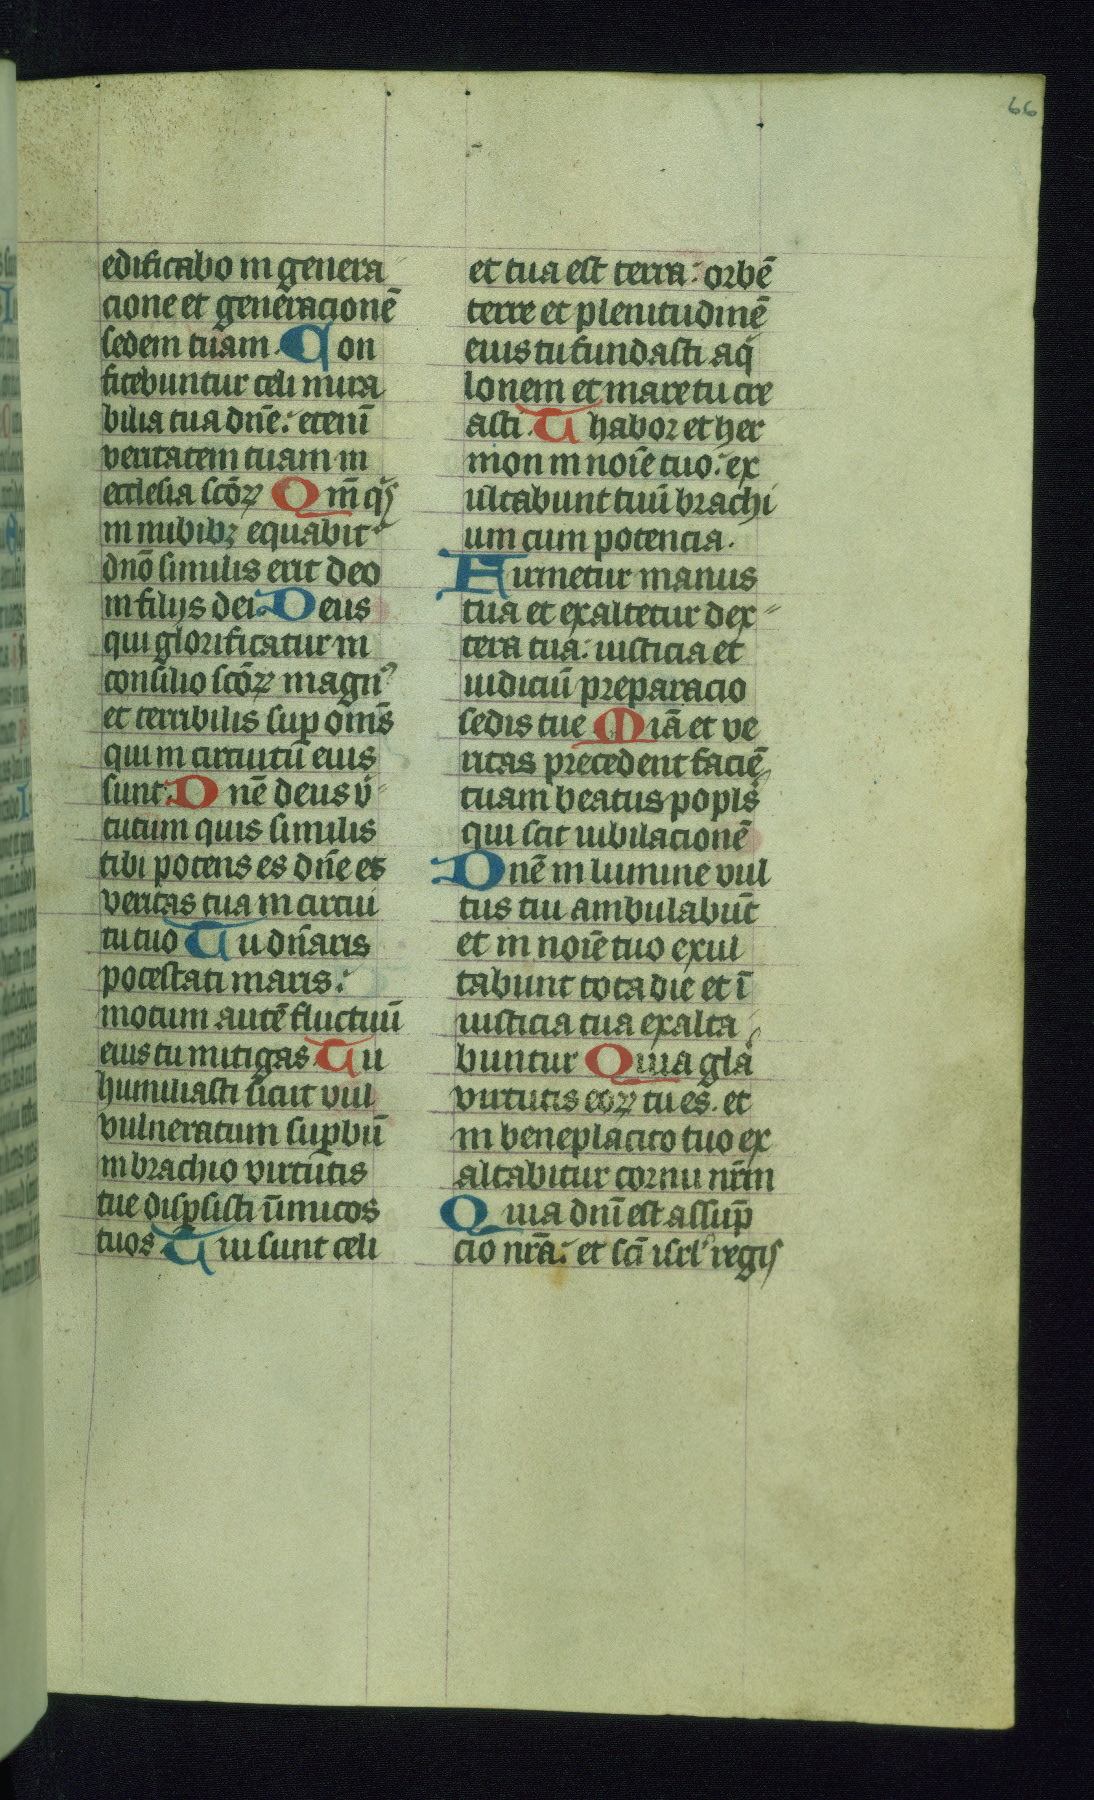 66
edificabo in genera
cione et generacionē
sedem tuam. Con
fitebuntur celi mira
bilia tua dn̄e: etenī
veritatem tuam in
ecclesia scōꝝ Qm̄ qͥs
in nubibꝫ equabitᷣ
dnō similis erit deo
in filijs dei. Deus
qui glorificatur in
consilio scōꝝ magnꝰ
et terribilis suꝑ om̄s
qui in circuitū eius
sunt: Dnē deus v̄
tutum quis similis
tibi potens es dn̄e et
veritas tua in circui
tu tuo Tu dn̄aris
potestati maris:
motum autē fluctuū
eius tu mitigas Tu
humiliasti sicut vul
vulneratum suꝑbū
in brachio virtutis
tue disꝑsisti īnimicos
tuos Tui sunt celi
et tua est terra: orbē
terre et plenitudinē
eius tu fundasti aq̇
lonem et mare tu cre
asti. Thabor et her
mon in noīe tuo: ex
ultabunt tuū brachi
um cum potencia.
Firmetur manus
tua et exaltetur dex
tera tua: iusticia et
iudiciū preparacio
sedis tue Mīa et ve
ritas precedent faciē
tuam beatus popls̄
qui scit iubilacionē
Dnē in lumine vul
tus tui ambulabūt
et in noīe tuo exul
tabunt tota die et ī
iusticia tua exalta
buntur Quia gl̄a
virtutis eoꝝ tu es. et
in beneplacito tuo ex
altabitur cornu nr̄m
Quia dnī est assūp
cio nrā: et scī isrl̄ regis